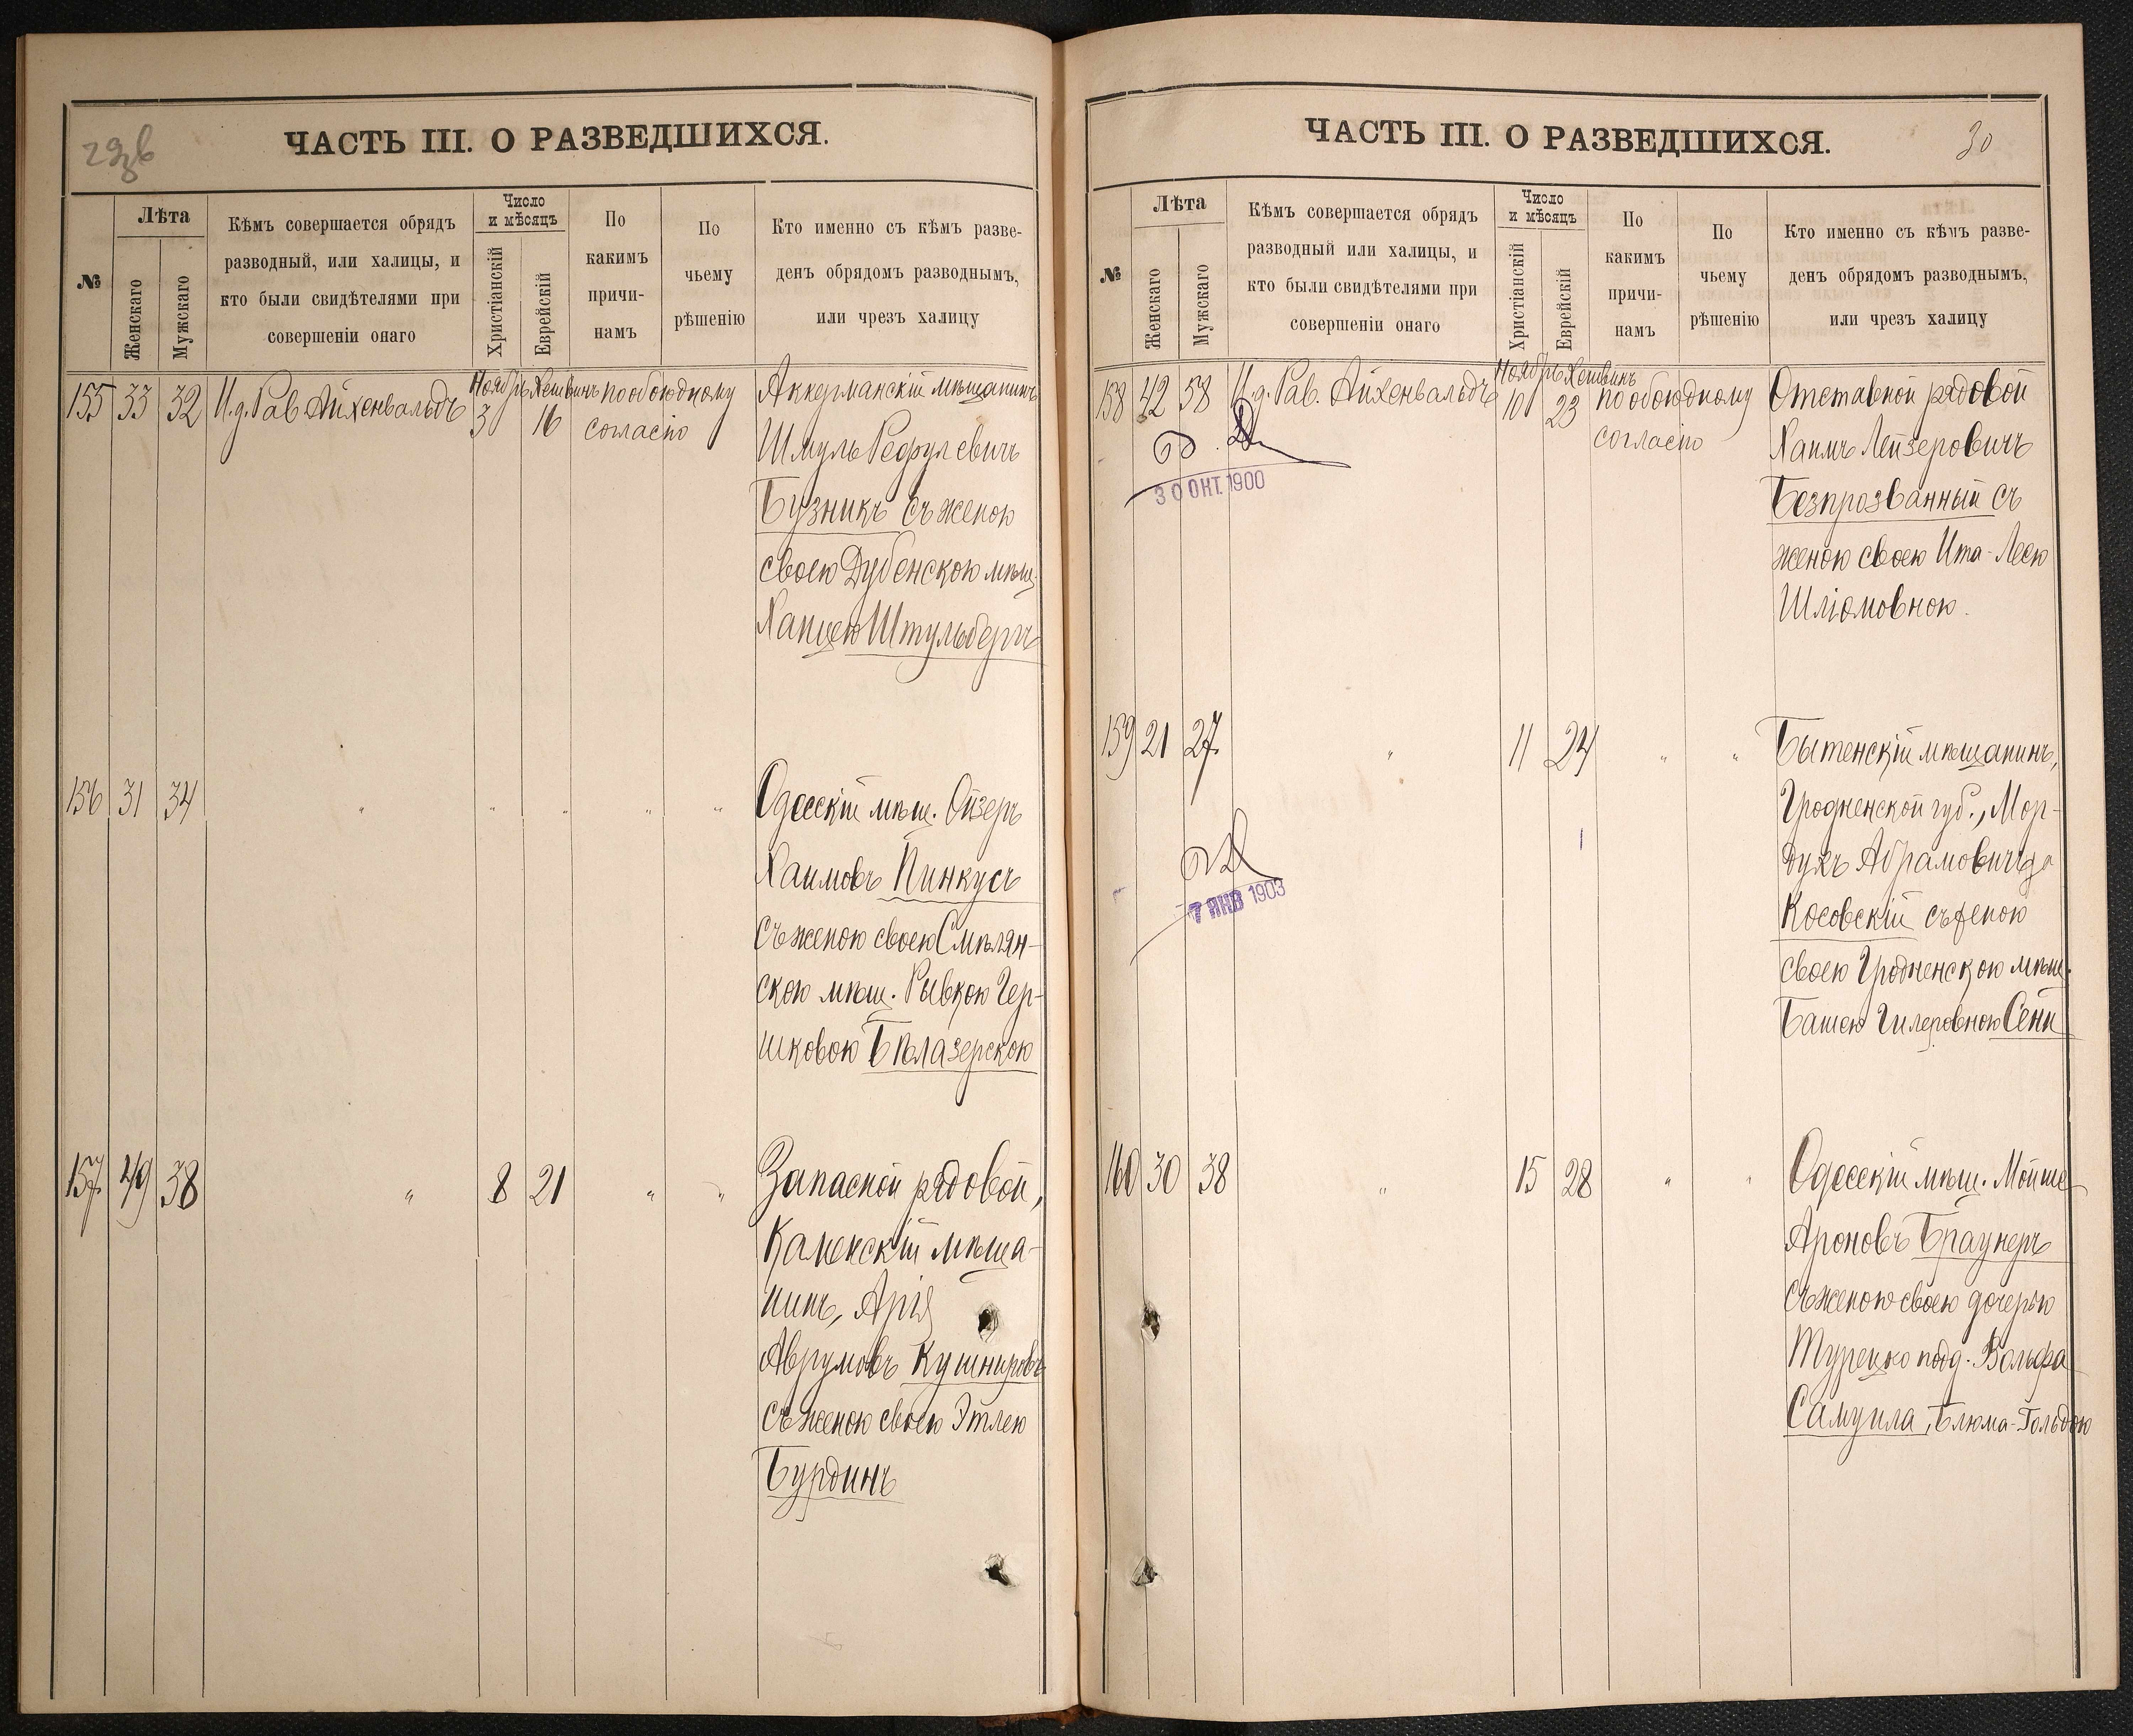 ЧАСТЬ III. О РАЗВЕДШИХСЯ.
№
Лѣта
Женскаго
Мужскаго
Кѣмъ совершается обрядъ
разводный, или халицы, и
кто были свидѣтелями при
совершеніи онаго
Число
и мѣсяцъ
Христіанскій
Еврейскій
По
какимъ
причи-
намъ
По
чьему
рѣшенію
Кто именно съ кѣмъ разве-
денъ обрядомъ разводнымъ,
или чрезъ халицу
155 33 32 И.д. Рав Айхенвальдъ Ноябрь 3 Хешвинъ 16 по обоюдному
согласію
Аккерманскій мѣщанинъ
Шмуль Рефулевичъ
Бузникъ съ женою
своею Дубенскою мѣщ.
Ханцею Штульбергъ
156 31 34 " " " " "
Одесскій мѣщ. Ойзеръ
Хаимовъ Пинкусъ
съ женою своею Смѣлян-
скою мѣщ. Рывкою Гер-
шковою Бѣлазерскою
157 49 38 " 8 21 " "
Запасной рядовой,
Каменскій мѣща-
нинъ, Арія
Аврумовъ Кушнировъ
съ женою своею Этлею
Бурдинъ
ЧАСТЬ III. О РАЗВЕДШИХСЯ.
30
№
Лѣта
Женскаго
Мужскаго
Кѣмъ совершается обрядъ
разводный или халицы, и
кто были свидѣтелями при
совершеніи онаго
Число
и мѣсяцъ
Христіанскій
Еврейскій
По
какимъ
причи-
намъ
По
чьему
рѣшенію
Кто именно съ кѣмъ разве-
денъ обрядомъ разводнымъ,
или чрезъ халицу
158 42 58 И.д. Рав. Айхенвальдъ Ноябрь 10 Хешвинъ 23 по обоюдному
согласію
30 ОКТ. 1900
Отставной рядовой
Хаимъ Лейзеровичъ
Безпрозванный съ
женою своею Ита-Леею
Шліомовною.
159 21 27 " 11 24 " "
7 ЯНВ 1903
Бытенскій мѣщанинъ,
Гродненской губ., Мор-
духъ Абрамовичъ
Косовскій съ женою
своею Гродненскою мѣщ.
Башею Гилеровною Сени
160 30 38 " 15 28 " "
Одесскій мѣщ. Мойше
Ароновъ Браунеръ
съ женою своею дочерью
Турецко подд. Вольфа
Самуила, Блюма-Гольдою